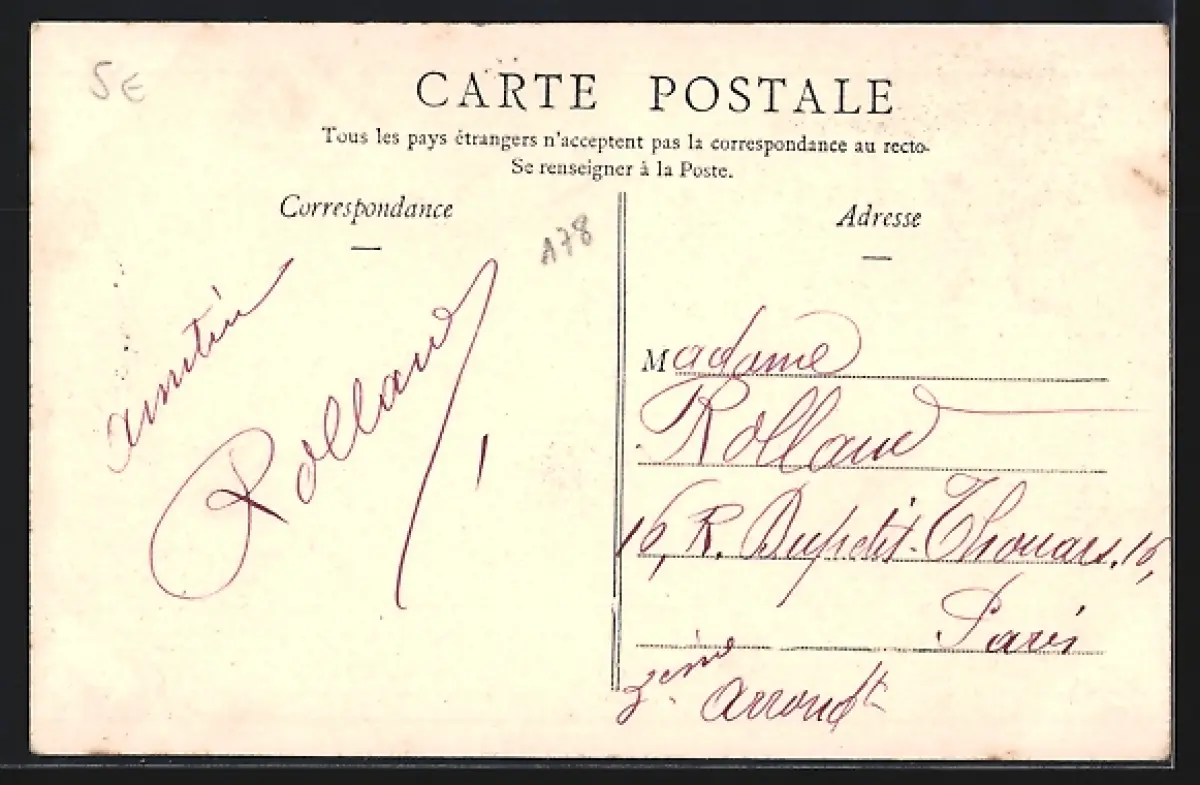 5E
CARTE POSTALE
Tous les pays étrangers n'acceptent pas la correspondance au recto.
Se renseigner à la Poste.
Correspondance
A78
Rolland
Adresse
Madame
Rolland
16, R. Dupetit-Thouars. 16,
Paris
3ème arrondt